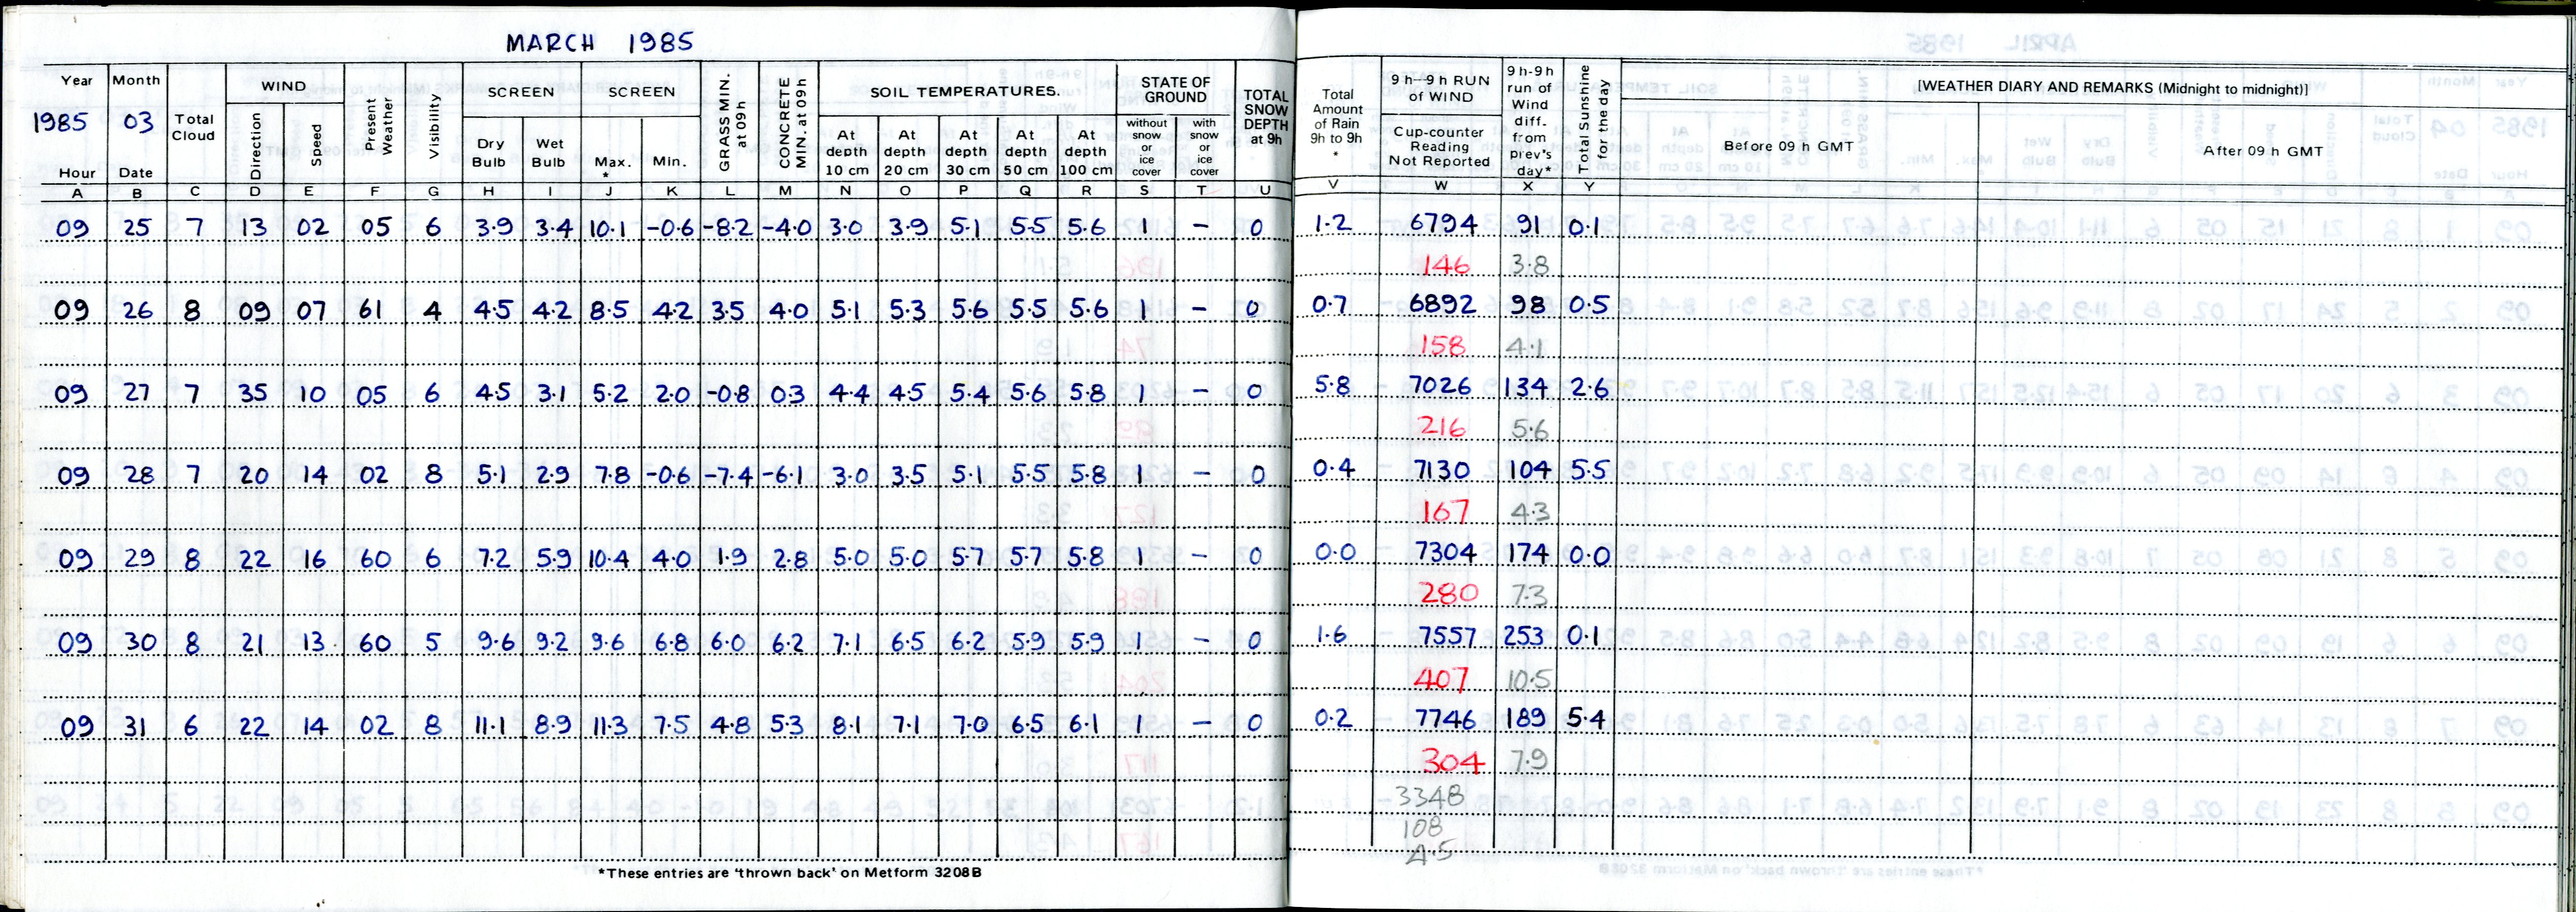 MARCH 1985
Year Month Total Cloud WIND Present Weather Visibility SCREEN SCREEN GRASS MIN. at 09 h CONCRETE MIN. at 09 h SOIL TEMPERATURES. STATE OF GROUND TOTAL SNOW DEPTH at 9h Total Amount of Rain 9h to 9h * 9 h-9 h RUN of WIND 9 h-9 h run of Wind diff. from prev's day* Total Sunshine for the day [WEATHER DIARY AND REMARKS (Midnight to midnight)]
1985 03
Hour Date Direction Speed Dry Bulb Wet Bulb Max. * Min. At depth 10 cm At depth 20 cm At depth 30 cm At depth 50 cm At depth 100 cm without snow or ice cover with snow or ice cover Cup-counter Reading Not Reported Before 09 h GMT After 09 h GMT
A B C D E F G H I J K L M N O P Q R S T U V W X Y
09 25 7 13 02 05 6 3.9 3.4 10.1 -0.6 -8.2 -4.0 3.0 3.9 5.1 5.5 5.6 1 - 0 1.2 6794 91 0.1
146 3.8
09 26 8 09 07 61 4 4.5 4.2 8.5 4.2 3.5 4.0 5.1 5.3 5.6 5.5 5.6 1 - 0 0.7 6892 98 0.5
158 4.1
09 27 7 35 10 05 6 4.5 3.1 5.2 2.0 -0.8 0.3 4.4 4.5 5.4 5.6 5.8 1 - 0 5.8 7026 134 2.6
216 5.6
09 28 7 20 14 02 8 5.1 2.9 7.8 -0.6 -7.4 -6.1 3.0 3.5 5.1 5.5 5.8 1 - 0 0.4 7130 104 5.5
167 4.3
09 29 8 22 16 60 6 7.2 5.9 10.4 4.0 1.9 2.8 5.0 5.0 5.7 5.7 5.8 1 - 0 0.0 7304 174 0.0
280 7.3
09 30 8 21 13 60 5 9.6 9.2 9.6 6.8 6.0 6.2 7.1 6.5 6.2 5.9 5.9 1 - 0 1.6 7557 253 0.1
407 10.5
09 31 6 22 14 02 8 11.1 8.9 11.3 7.5 4.8 5.3 8.1 7.1 7.0 6.5 6.1 1 - 0 0.2 7746 189 5.4
304 7.9
3348
108
4.5
*These entries are 'thrown back' on Metform 3208B